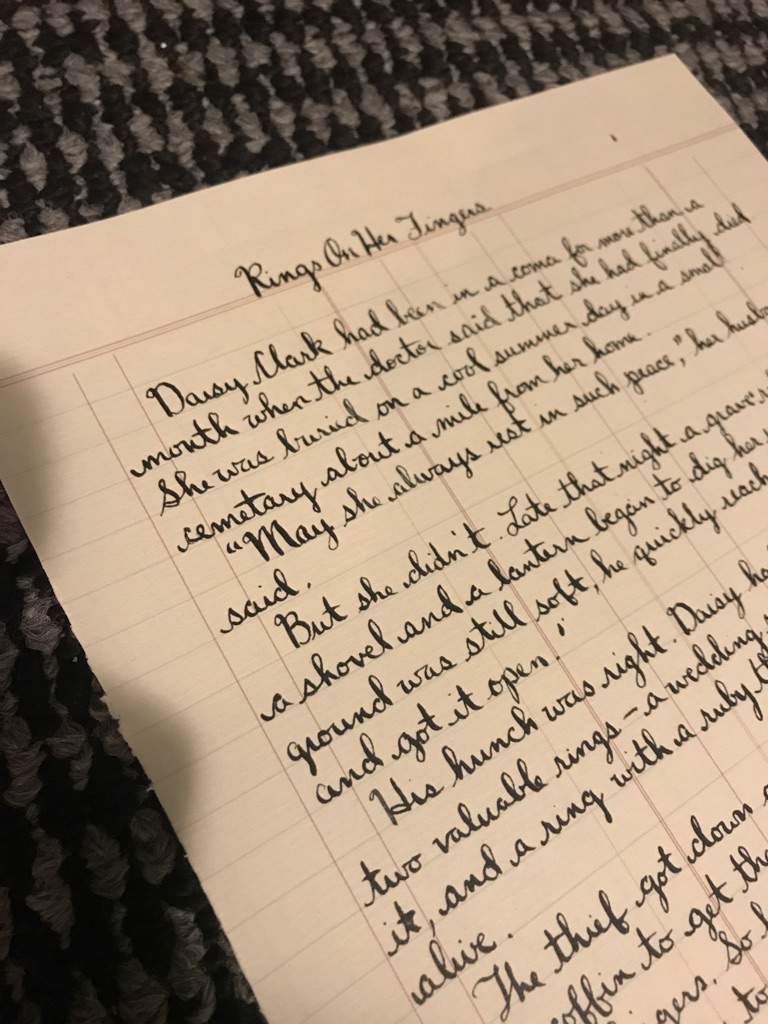 Rings On Her Fingers
Daisy Clark had been in a coma for more than a
month when the doctor said that she had finally died
She was buried on a cool summer day in a small
cemetary about a mile from her home.
"May she always rest in such peace," her husb
said.
But she didn't. Late that night a grave
a shovel and a lantern began to dig her
ground was still soft, he quickly reach
and got it open.
His hunch was right. Daisy ha
two valuable rings - a wedding
it, and a ring with a ruby th
alive.
The thief got down
coffin to get the
gers. So h
to